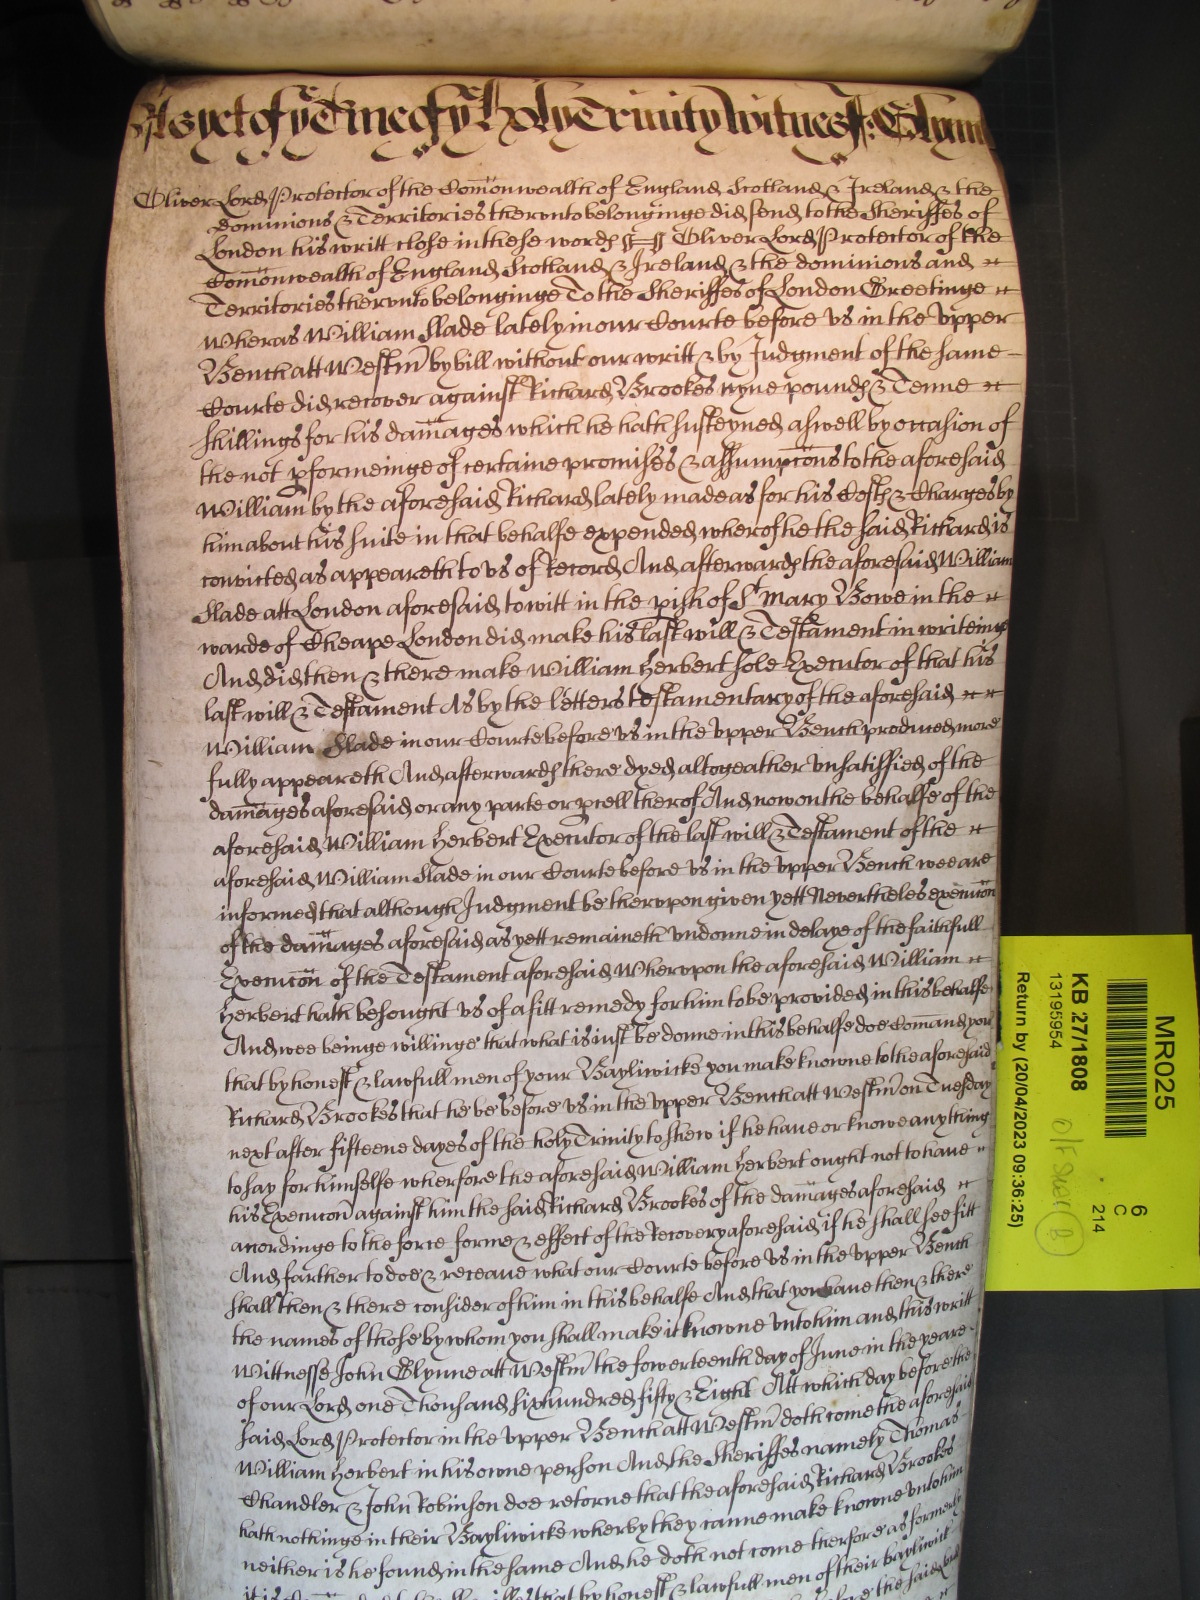 As yet of ye Tme of ye Holy Trinity Witnes J: Glynn
Oliver Lord Protector of the Comonwealth of England Scotland & Ireland & the
dominions & Territories therunto belonginge did send to the Sheriffes of
London his writt close in these words ss Oliver Lord Protector of the
Comonwealth of England Scotland & Ireland & the dominions and
Territories therunto belonginge To the Sheriffes of London Greetinge
Wheras William Slade lately in our Courte before us in the Upper
Bench att Westm by bill without our writt & by Judgment of the same
Courte did recover against Richard Brookes nyne pounds & Tenne
shillings for his damages which he hath susteyned aswell by occasion of
the not pformeinge of certaine promises & assumpcons to the aforesaid
William by the aforesaid Richard lately made as for his Costs & Charges by
him about his suite in that behalfe expended wherof he the said Richard is
convicted as appeareth to us of Record And afterwards the aforesaid William
Slade att London aforesaid to witt in the pish of St Mary Bowe in the
warde of Cheape London did make his last will & Testament in writeinge
And did then & there make William Herbert sole Executor of that his
last will & Testament As by the letters testamentary of the aforesaid
William Slade in our Courte before us in the upper Bench produced more
fully appeareth And afterwards there dyed altogeather unsatisfied of the
damages aforesaid or any parte or pcell therof And now on the behalfe of the
aforesaid William Herbert Executor of the last will & Testament of the
aforesaid William Slade in our Courte before us in the upper Bench wee are
informed that although Judgment be therupon given yett Nevertheles execucon
of the damages aforesaid as yett remaineth undonne in delaye of the faithfull
Execucon of the Testament aforesaid Wherupon the aforesaid William
Herbert hath besought us of a fitt remedy for him to be provided in this behalfe
And wee beinge willinge that what is iust be donne in this behalfe doe Comand you
that by honest & lawfull men of your Bayliwicke you make knowne to the aforesaid
Richard Brookes that he be before us in the upper Bench att Westm on Tuesday
next after fifteene dayes of the holy Trinity to shew if he have or knowe anythinge
to say for himselfe wherfore the aforesaid William Herbert ought not to have
his Execucon against him the said Richard Brookes of the damages aforesaid
accordinge to the force forme & effect of the Recovery aforesaid if he shall see fitt
And farther to doe & receave what our Courte before us in the upper Bench
shall then & there consider of him in this behalfe And that you have then & there
the names of those by whom you shall make it knowne unto him and this writt
Wittnesse John Glynne att Westm the fowerteenth day of June in the yeare
of our Lord one Thousand six hundred fifty & Eight Att which day before the
said Lord Protector in the upper Bench att Westm doth come the aforesaid
William Herbert in his owne person And the Sheriffes namely Thomas
Chandler & John Robinson doe retorne that the aforesaid Richard Brookes
hath nothinge in their Bayliwicke wherby they canne make knowne unto him
neither is he found in the same And he doth not come therfore as formerly
that by honest & lawfull men of their bayliwick
MR025
6
C
214
KB 27/1808
13195954
Return by (20/04/2023 09:36:25)